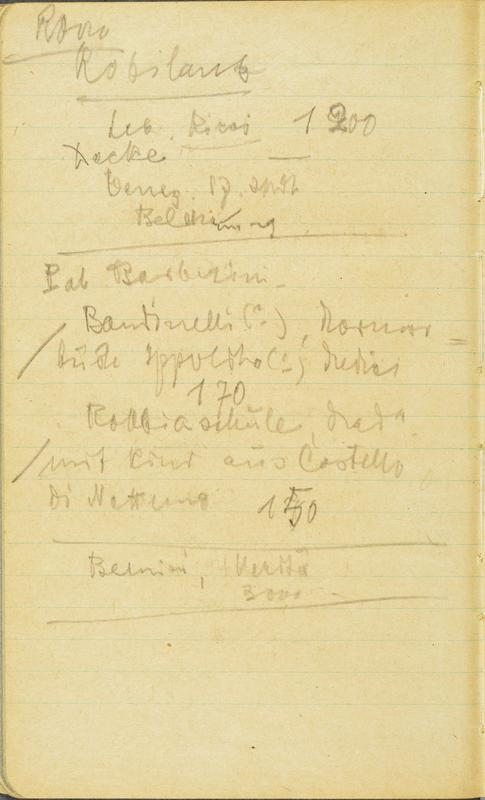 Rom
Robilant
Seb. Ricci 1200
Decke
Venez. 17. Jhdt
Pal Barberini
Bandinelli (?), Marmor=
büste Ippolito (?) Medici
170
Robbiaschule, Mad"
mit Kind aus Castello
di Nettuno 150
Bernini, Verità
3000